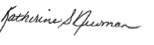 Katherine S Newman